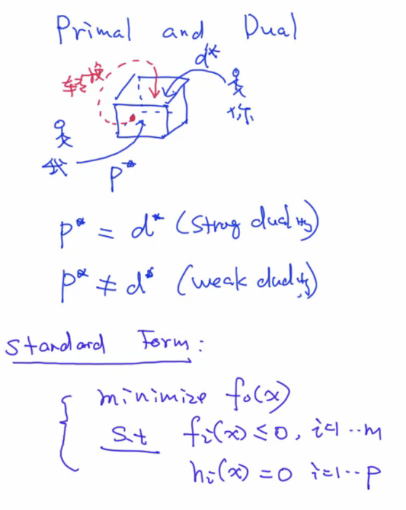 Primal and Dual
d*
转换
你
我
p*
p* = d* (strong duality)
p* ≠ d* (weak duality)
Standard Form:
minimize f₀(x)
St fᵢ(x) ≤ 0, i=1···m
hᵢ(x) = 0 i=1···p